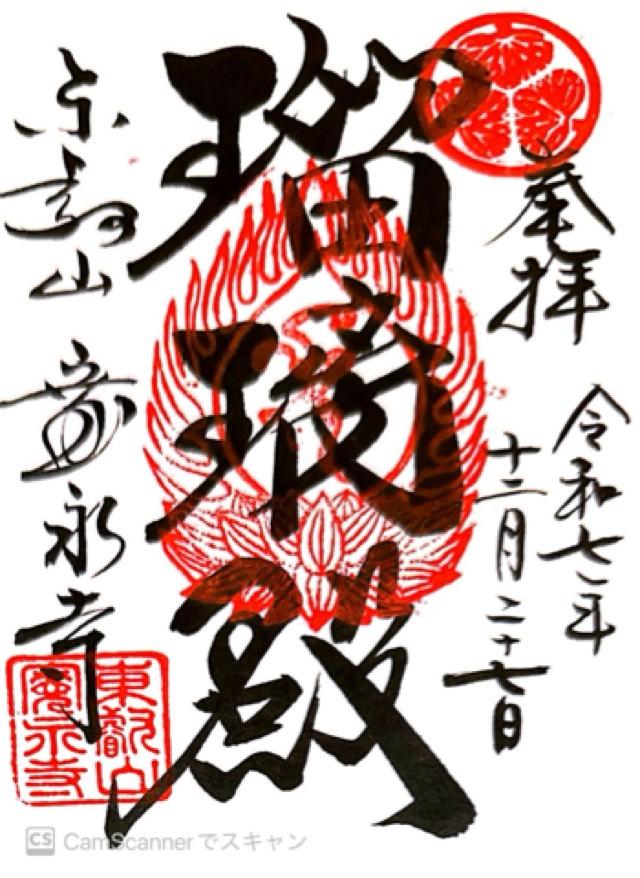 奉拝
令和七年
十二月二十七日
瑠璃殿
東叡山 寛永寺
東叡山
寛永寺
CS CamScannerでスキャン